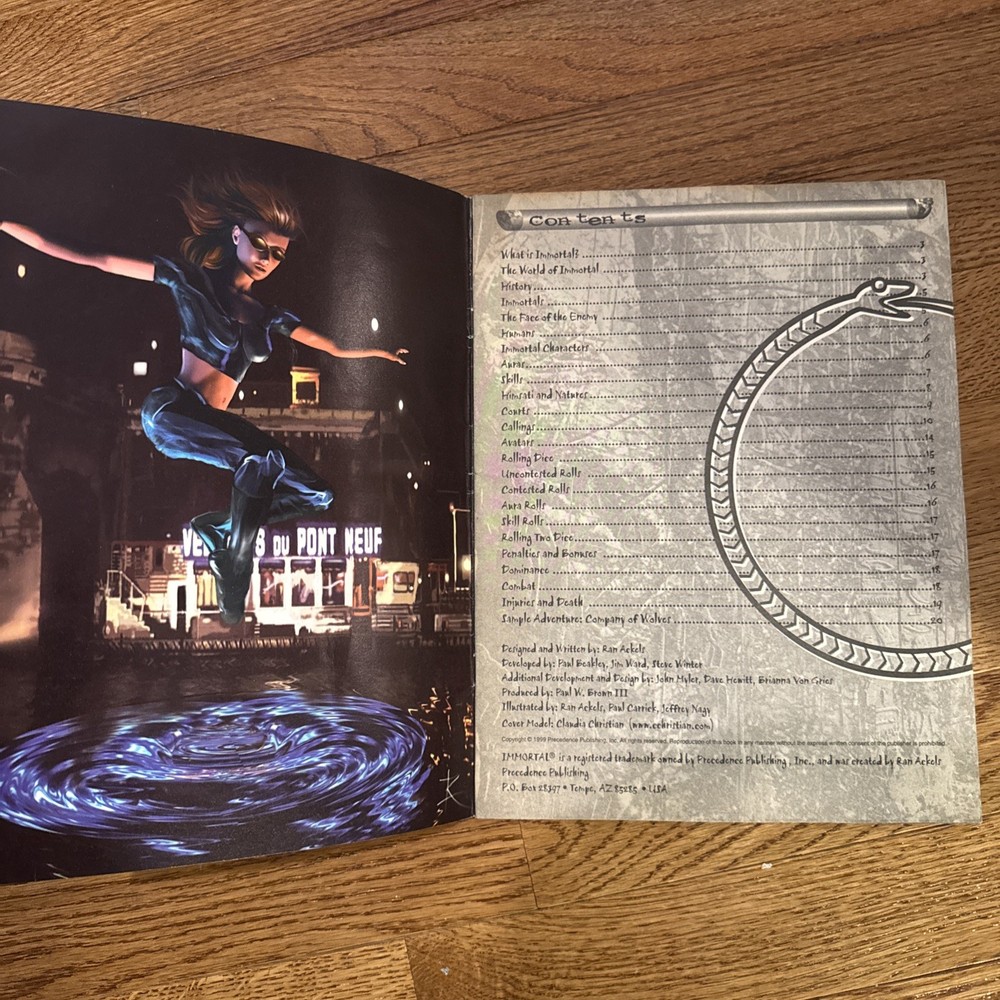 VE S DU PONT NEUF
Contents
What is Immortal? 3
The World of Immortal 3
History 5
Immortals 5
The Face of the Enemy
Humans 6
Immortal Characters 6
Auras 6
Skills 7
Himsati and Natures 8
Courts 9
Callings 10
Avatars 14
Rolling Dice 15
Uncontested Rolls 15
Contested Rolls 16
Aura Rolls 16
Skill Rolls 17
Rolling Two Dice 17
Penalties and Bonuses 17
Dominance 18
Combat 18
Injuries and Death 19
Sample Adventure: Company of Wolves 20
Designed and Written by: Ran Ackels
Developed by: Paul Beakley, Jim Ward, Steve Winter
Additional Development and Design by: John Myler, Dave Hewitt, Brianna Von Gries
Produced by: Paul W. Brown III
Illustrated by: Ran Ackels, Paul Carrick, Jeffrey Nagy
Cover Model: Claudia Christian (www.cchristian.com)
Copyright © 1999 Precedence Publishing, Inc. All rights reserved. Reproduction of this book in any manner without the express written consent of the publisher is prohibited.
IMMORTAL® is a registered trademark owned by Precedence Publishing, Inc., and was created by Ran Ackels
Precedence Publishing
P.O. Box 28397 • Tempe, AZ 85285 • USA